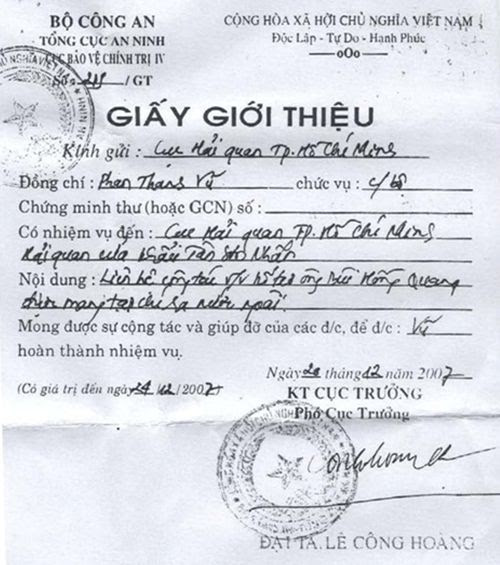 BỘ CÔNG AN
TỔNG CỤC AN NINH
CỤC BẢO VỆ CHÍNH TRỊ IV
Số: 218 /GT
CỘNG HÒA XÃ HỘI CHỦ NGHĨA VIỆT NAM
Độc Lập - Tự Do - Hạnh Phúc
oOo
GIẤY GIỚI THIỆU
Kính gửi : Cục Hải quan Tp. Hồ Chí Minh
Đồng chí : Phan Thanh Vũ chức vụ : c/bộ
Chứng minh thư (hoặc GCN) số :
Có nhiệm vụ đến : Cục Hải quan TP. Hồ Chí Minh
Hải quan cửa khẩu Tân Sơn Nhất
Nội dung : Liên hệ công tác v/v hỗ trợ ông Bùi Hồng Quang
mang tại ra nước ngoài.
Mong được sự cộng tác và giúp đỡ của các đ/c, để đ/c : Vũ
hoàn thành nhiệm vụ.
Ngày 20 tháng 12 năm 2007
(Có giá trị đến ngày 24/12/2007)
KT CỤC TRƯỞNG
Phó Cục Trưởng
ĐẠI TÁ. LÊ CÔNG HOÀNG